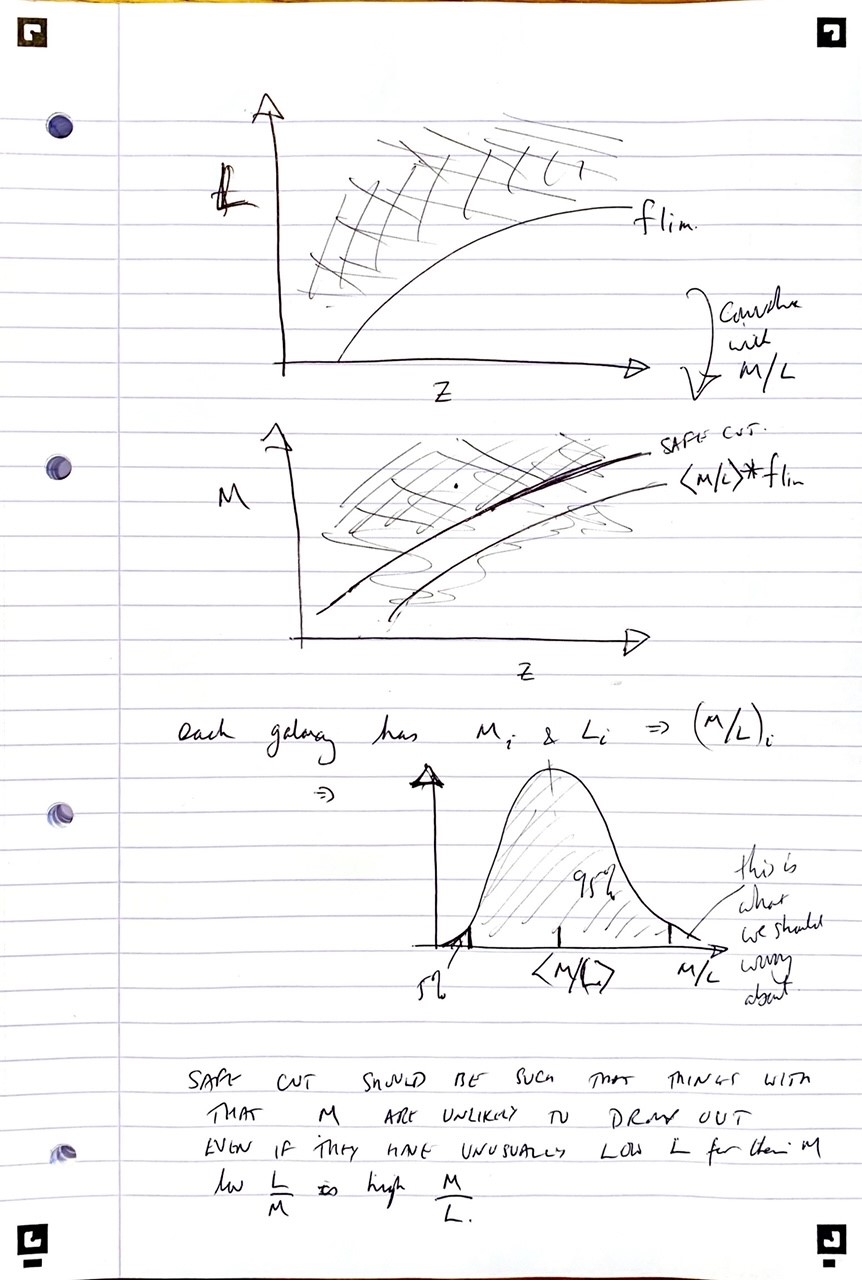 L
flim.
Z
Convolve
with
M/L
M
SAFE CUT.
<M/L>*flim
Z
each galaxy has Mi & Li ⇒ (M/L)i
⇒
95%
this is
what
we should
worry
about
5%
<M/L>
M/L
SAFE CUT SHOULD BE SUCH THAT THINGS WITH
THAT M ARE UNLIKELY TO DROP OUT
EVEN IF THEY HAVE UNUSUALLY LOW L for their M
low L/M is high M/L.